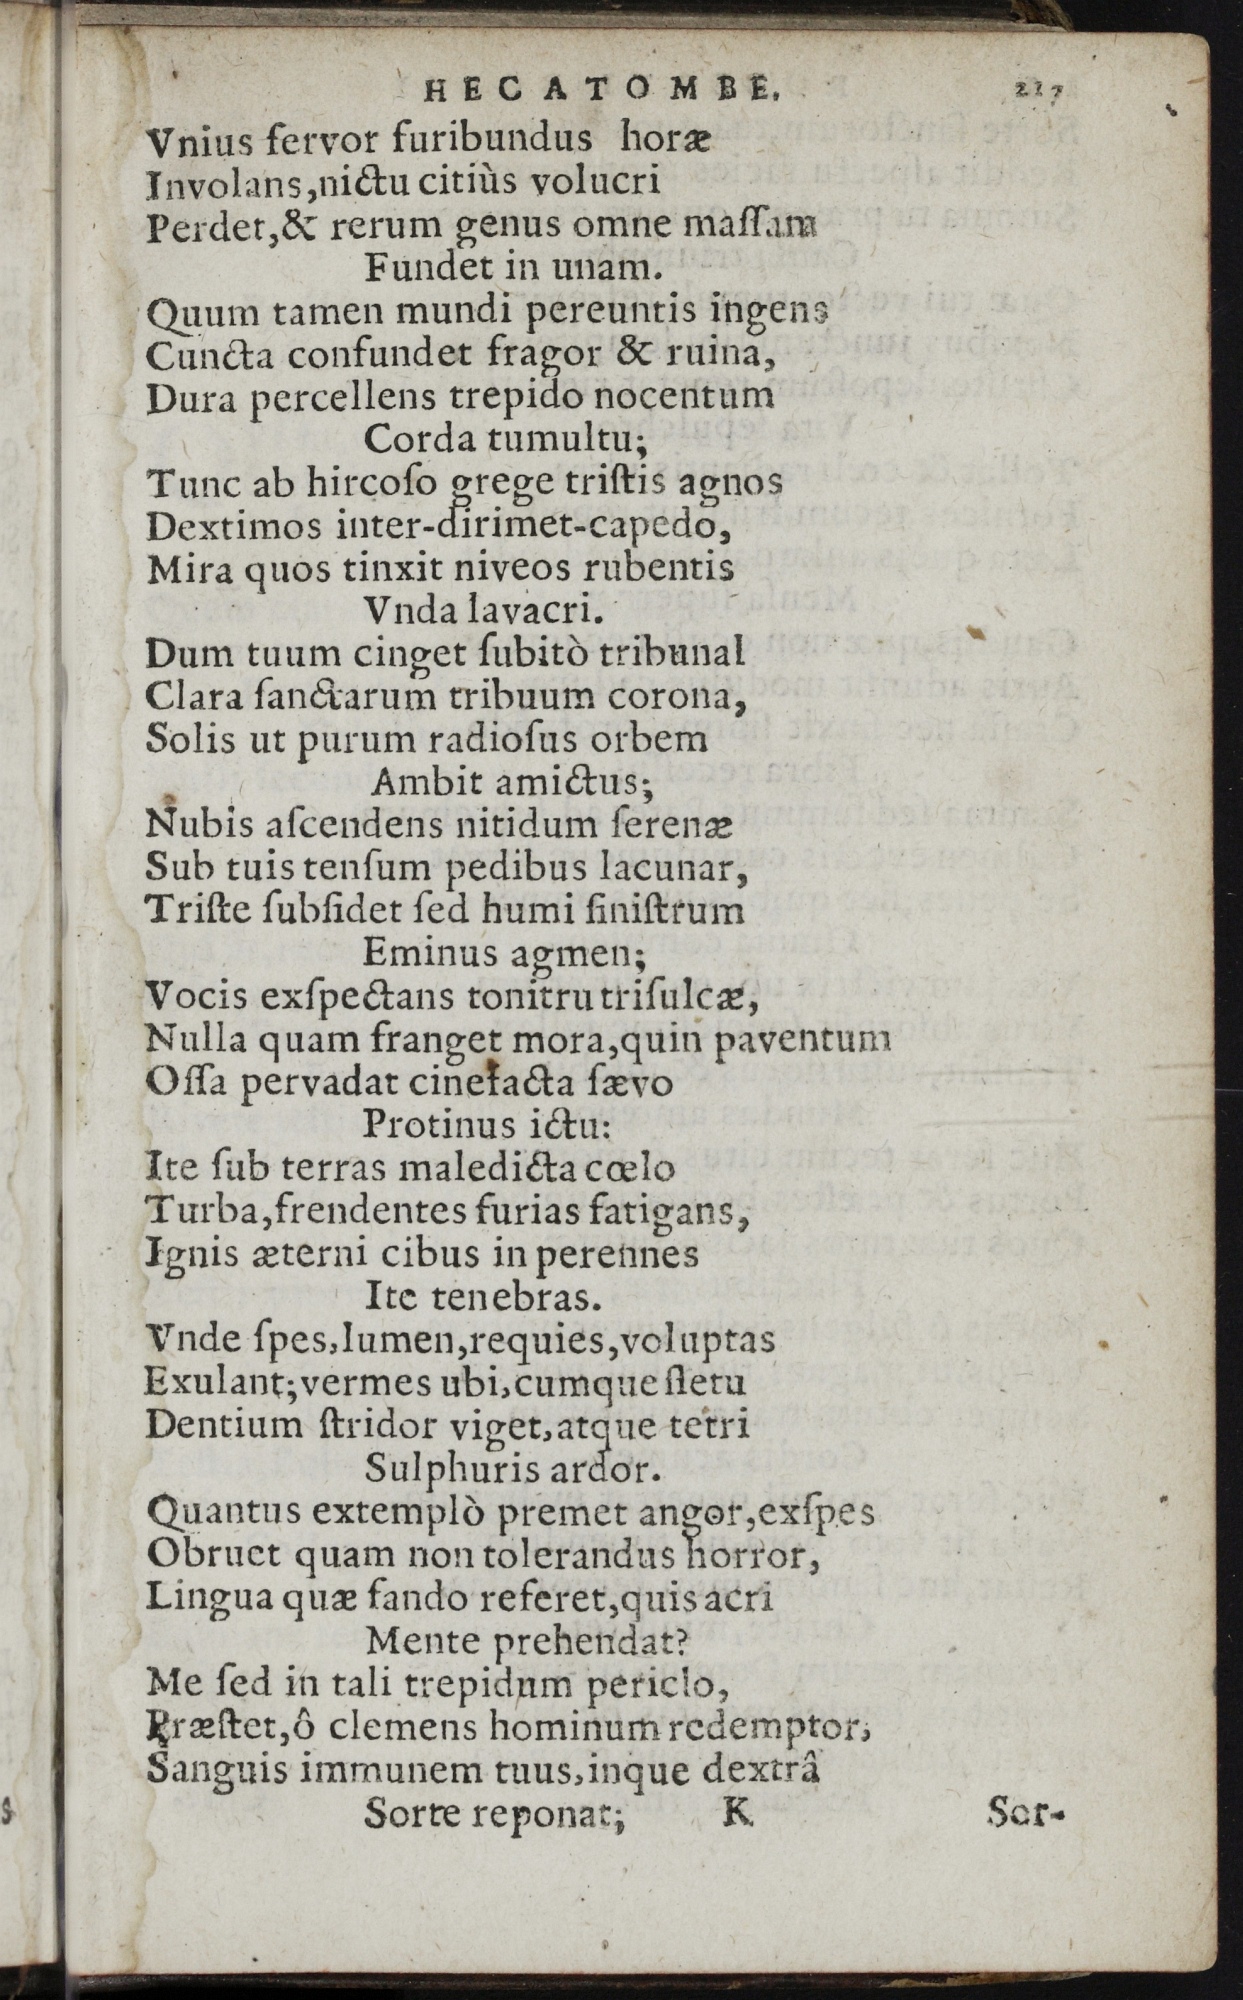 HECATOMBE. 217
Vnius fervor furibundus horæ
Involans,nictu citiùs volucri
Perdet,& rerum genus omne maſſam
Fundet in unam.
Quum tamen mundi pereuntis ingens
Cuncta confundet fragor & ruina,
Dura percellens trepido nocentum
Corda tumultu;
Tunc ab hircoſo grege triſtis agnos
Dextimos inter-dirimet-capedo,
Mira quos tinxit niveos rubentis
Vnda lavacri.
Dum tuum cinget ſubitò tribunal
Clara ſanctarum tribuum corona,
Solis ut purum radioſus orbem
Ambit amictus;
Nubis aſcendens nitidum ſerenæ
Sub tuis tenſum pedibus lacunar,
Triſte ſubſidet ſed humi ſiniſtrum
Eminus agmen;
Vocis exſpectans tonitru triſulcæ,
Nulla quam franget mora,quin paventum
Oſſa pervadat cinefacta ſævo
Protinus ictu:
Ite ſub terras maledicta cœlo
Turba,frendentes furias fatigans,
Ignis æterni cibus in perennes
Ite tenebras.
Vnde ſpes,lumen,requies,voluptas
Exulant;vermes ubi,cumque fletu
Dentium ſtridor viget,atque tetri
Sulphuris ardor.
Quantus extemplò premet angor,exſpes
Obruet quam non tolerandus horror,
Lingua quæ fando referet,quis acri
Mente prehendat?
Me ſed in tali trepidum periclo,
Præſtet,ô clemens hominum redemptor,
Sanguis immunem tuus,inque dextrâ
Sorte reponat; K Sor-